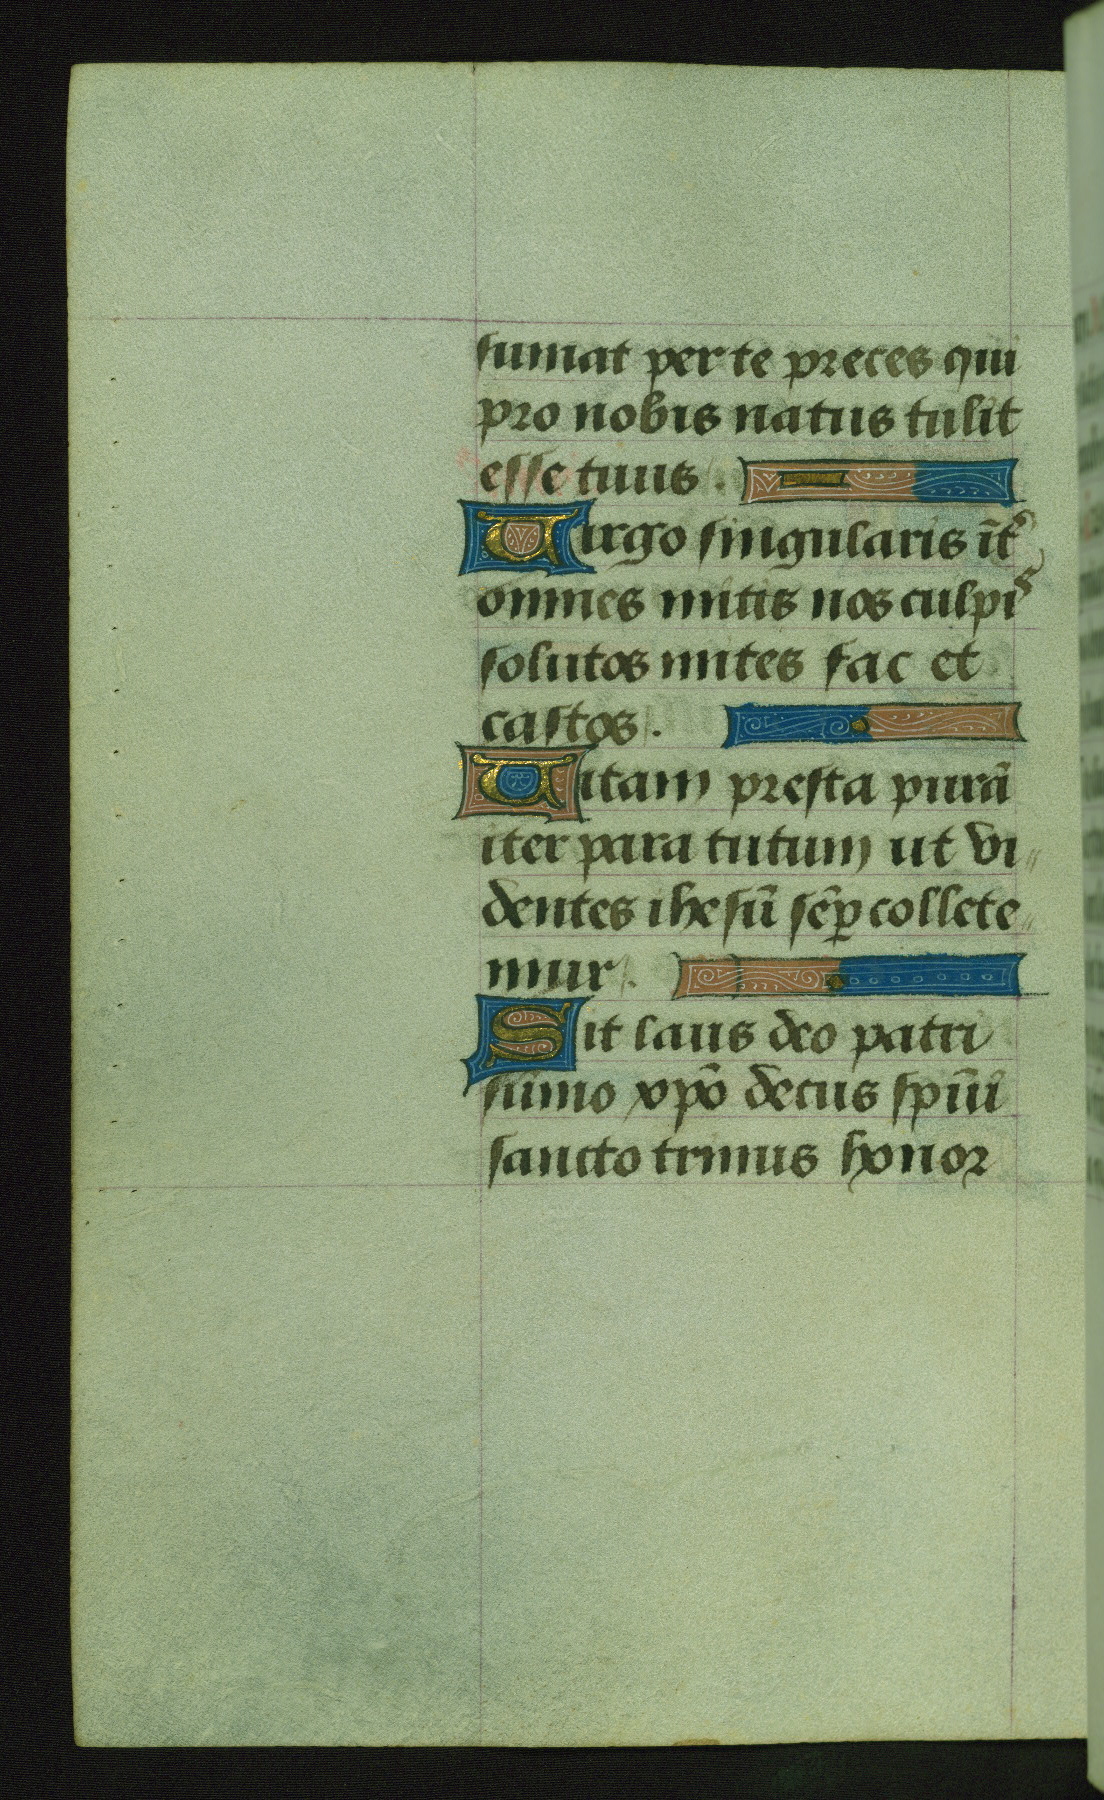 sumat per te preces qui
pro nobis natus tulit
esse tuus .
Uirgo singularis īt̾
omnes mitis nos culpis
solutos mites fac et
castos .
Uitam presta purā
iter para tutum ut vi
dentes ihesū sēp̲ collete
mur .
Sit laus deo patri
sūmo xp̄o decus spūi
sancto trinus honor